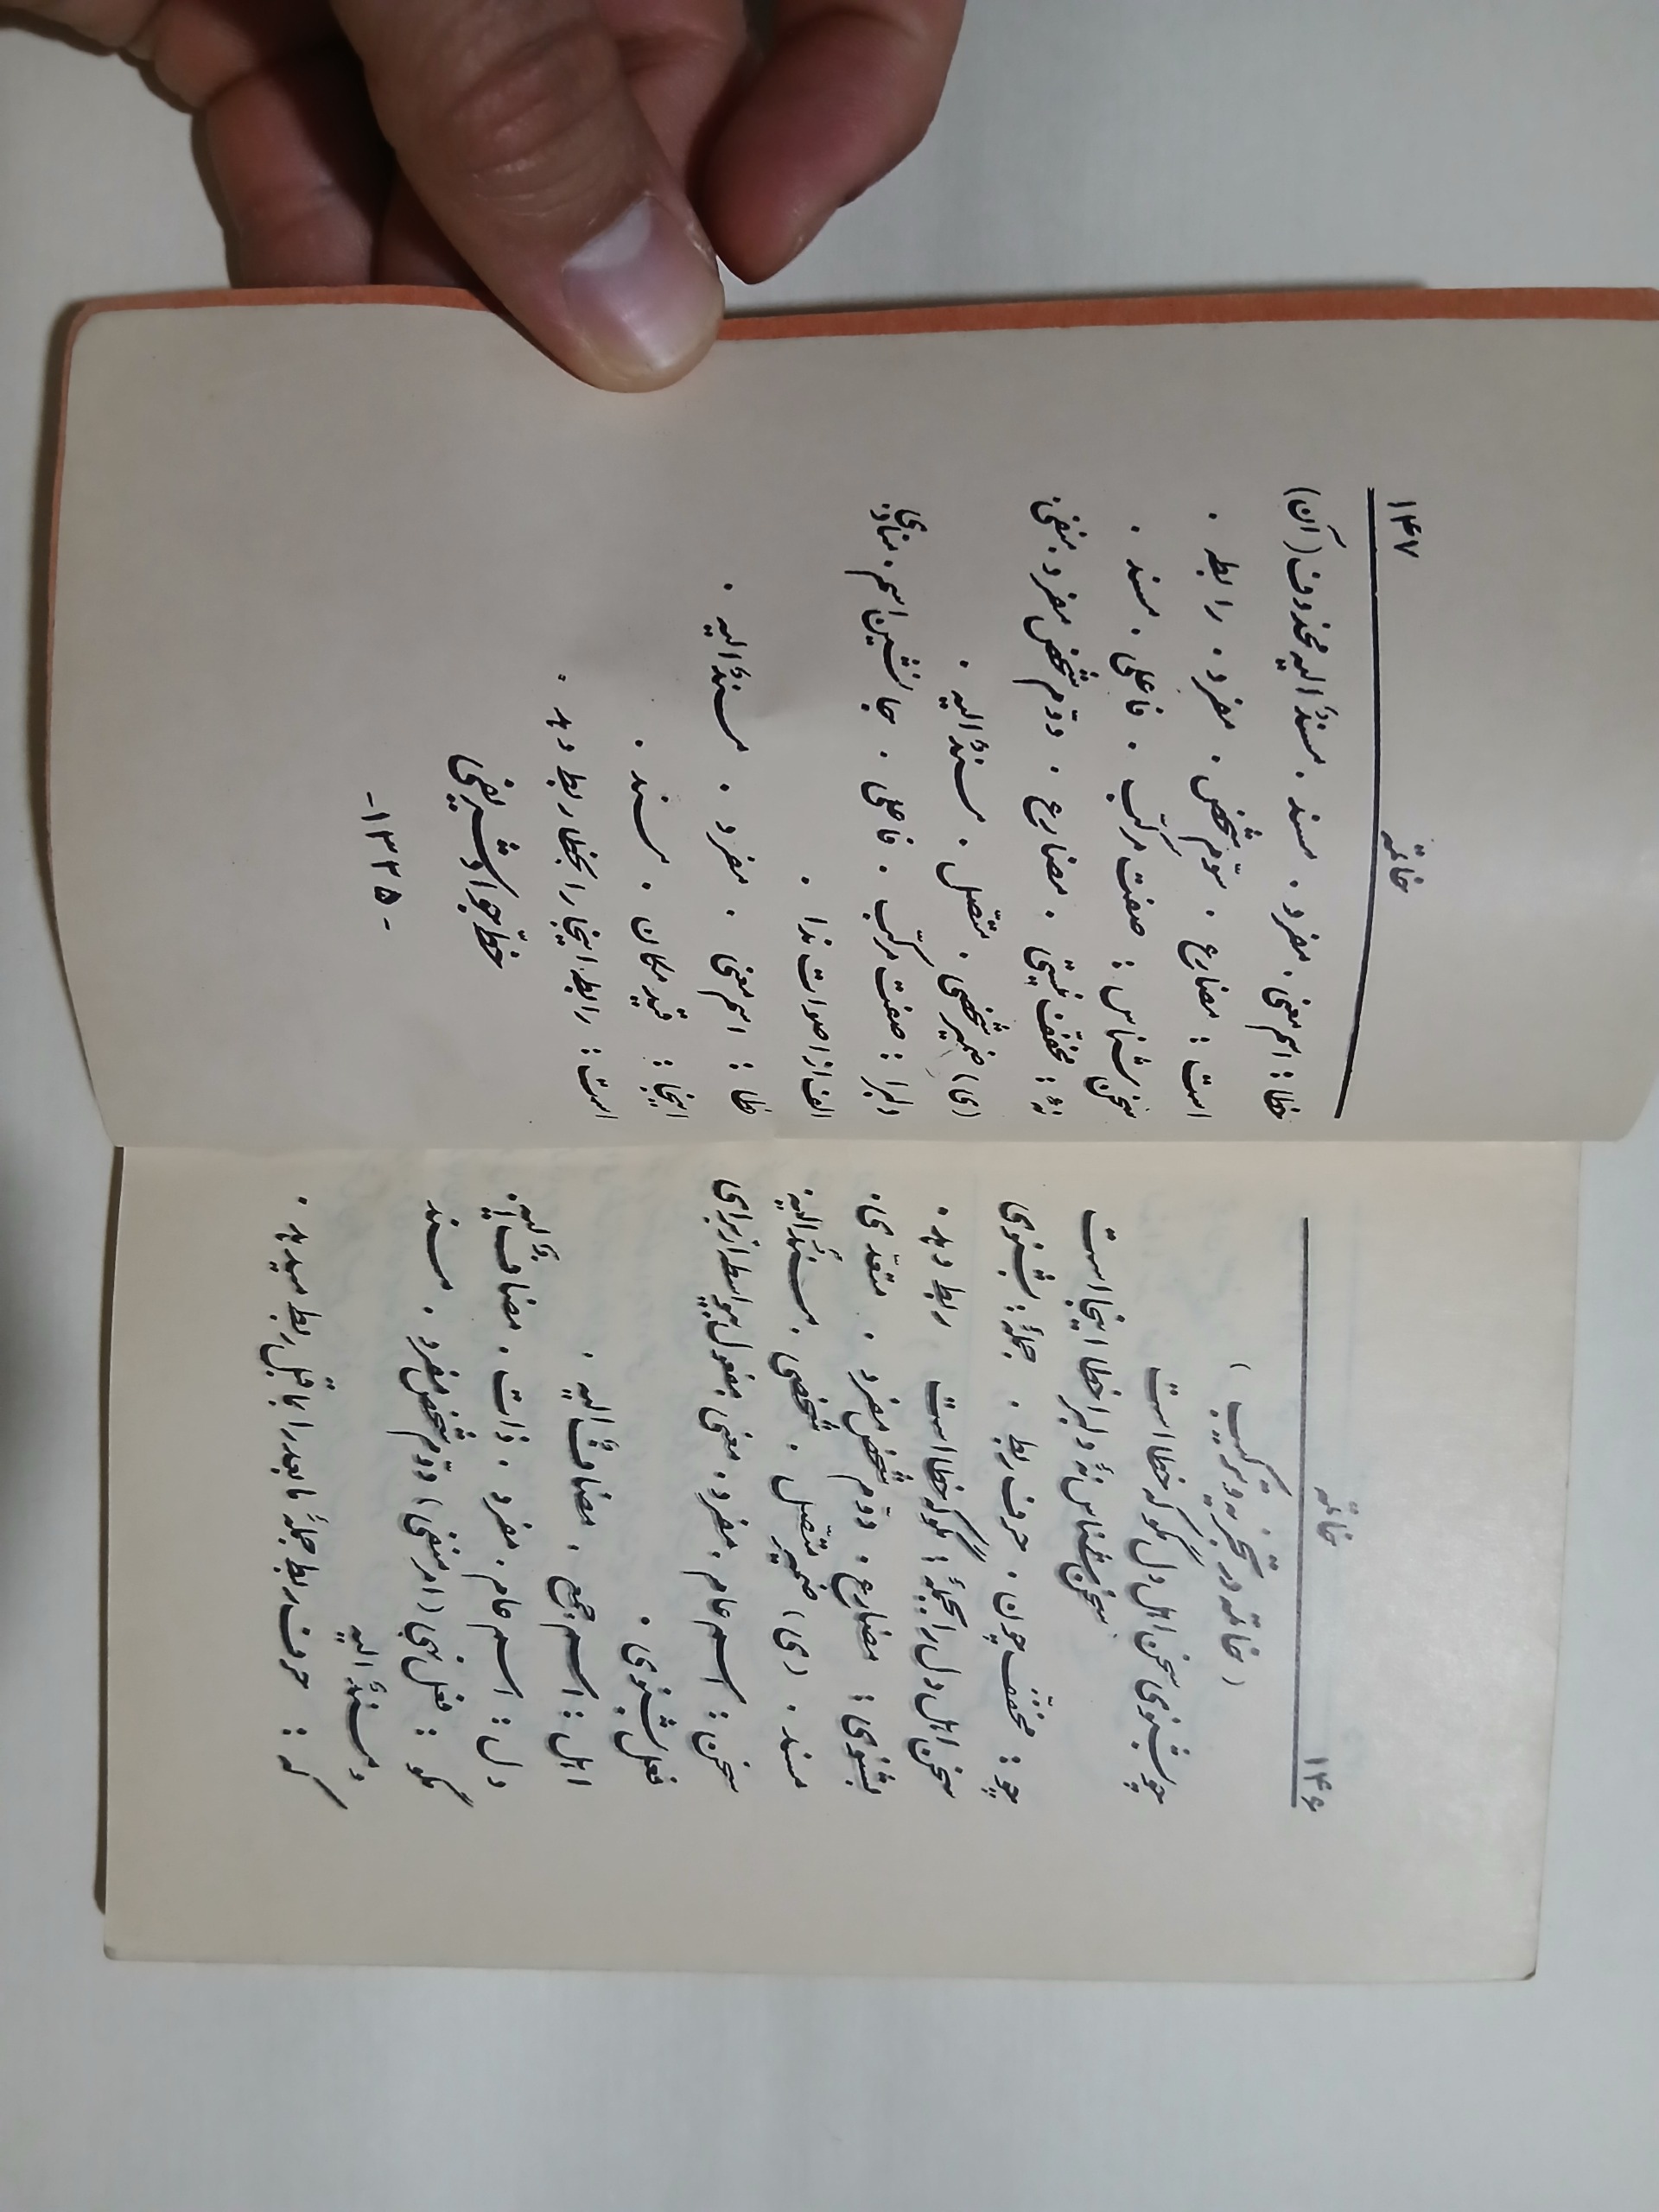 ۱۴۶
خاتمة
(خاتمه در تجزیه و ترکیب)
چو بشنوی سخن اهل دل مگو که خطا است
سخن شناس نهٔ دلبرا خطا اینجا است
چو : مخفّف چون . حرف ربط . جملهٔ : بشنوی
سخن اهل دل را بجملهٔ : مگو که خطا است ربط دهد .
بشنوی : مضارع . دوّم شخص مفرد . متعدّی .
مسند . (ی) ضمیر متّصل . شخصی . مسندٌالیه .
سخن : اسم عام . مفرد . معنی مفعول بیواسطه از برای
فعل بشنوی .
اهل : اسم جمع . مضافٌ الیه .
دل : اسم عام . مفرد . ذات . مضافٌ الیه .
مگو : فعل نهی (امر منفی) دوّم شخص مفرد . مسند
و مسندٌالیه
که : حرف ربط جملهٔ مابعد را بماقبل ربط میدهد .
۱۴۷
خاتمة
خطا : اسم معنی . مفرد . مسند . مسندٌالیه محذوف (آن)
است : مضارع . سوّم شخص . مفرد . رابطه .
سخن شناس : صفت مرکّب . فاعلی . مسند .
نهٔ : مخفّف نیستی . مضارع . دوّم شخص مفرد . منفی .
(ی) ضمیر شخصی . متّصل . مسندٌالیه .
دلبرا : صفت مرکّب . فاعلی . جانشین اسم . منادی
الف از اصوات ندا .
خطا : اسم معنی . مفرد . مسندٌالیه .
اینجا : قید مکان . مسند .
است : رابطه اینجا را بخطا ربط دهد .
خطّ جواد شریفی
-۱۳۳۵-